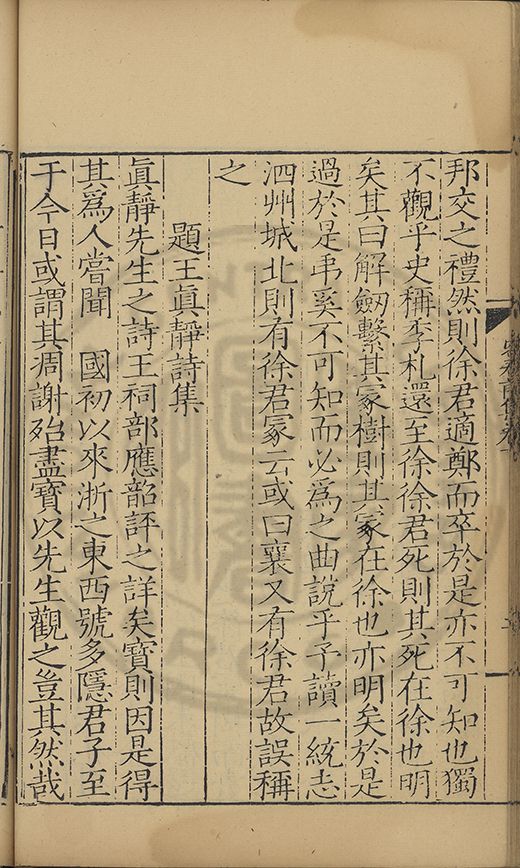 邦交之禮然則徐君適鄭而卒於是亦不可知也獨
不觀乎史稱季札還至徐徐君死則其死在徐也明
矣其曰解劒繫其冢樹則其冢在徐也亦明矣於是
過於是乎奚不可知而必為之曲說乎予讀一統志
泗州城北則有徐君冢云或曰襄又有徐君故誤稱
之
題王眞靜詩集
眞靜先生之詩王祠部應韶評之詳矣寶則因是得
其為人嘗聞 國初以來浙之東西號多隱君子至
于今日或謂其凋謝殆盡寶以先生觀之豈其然哉